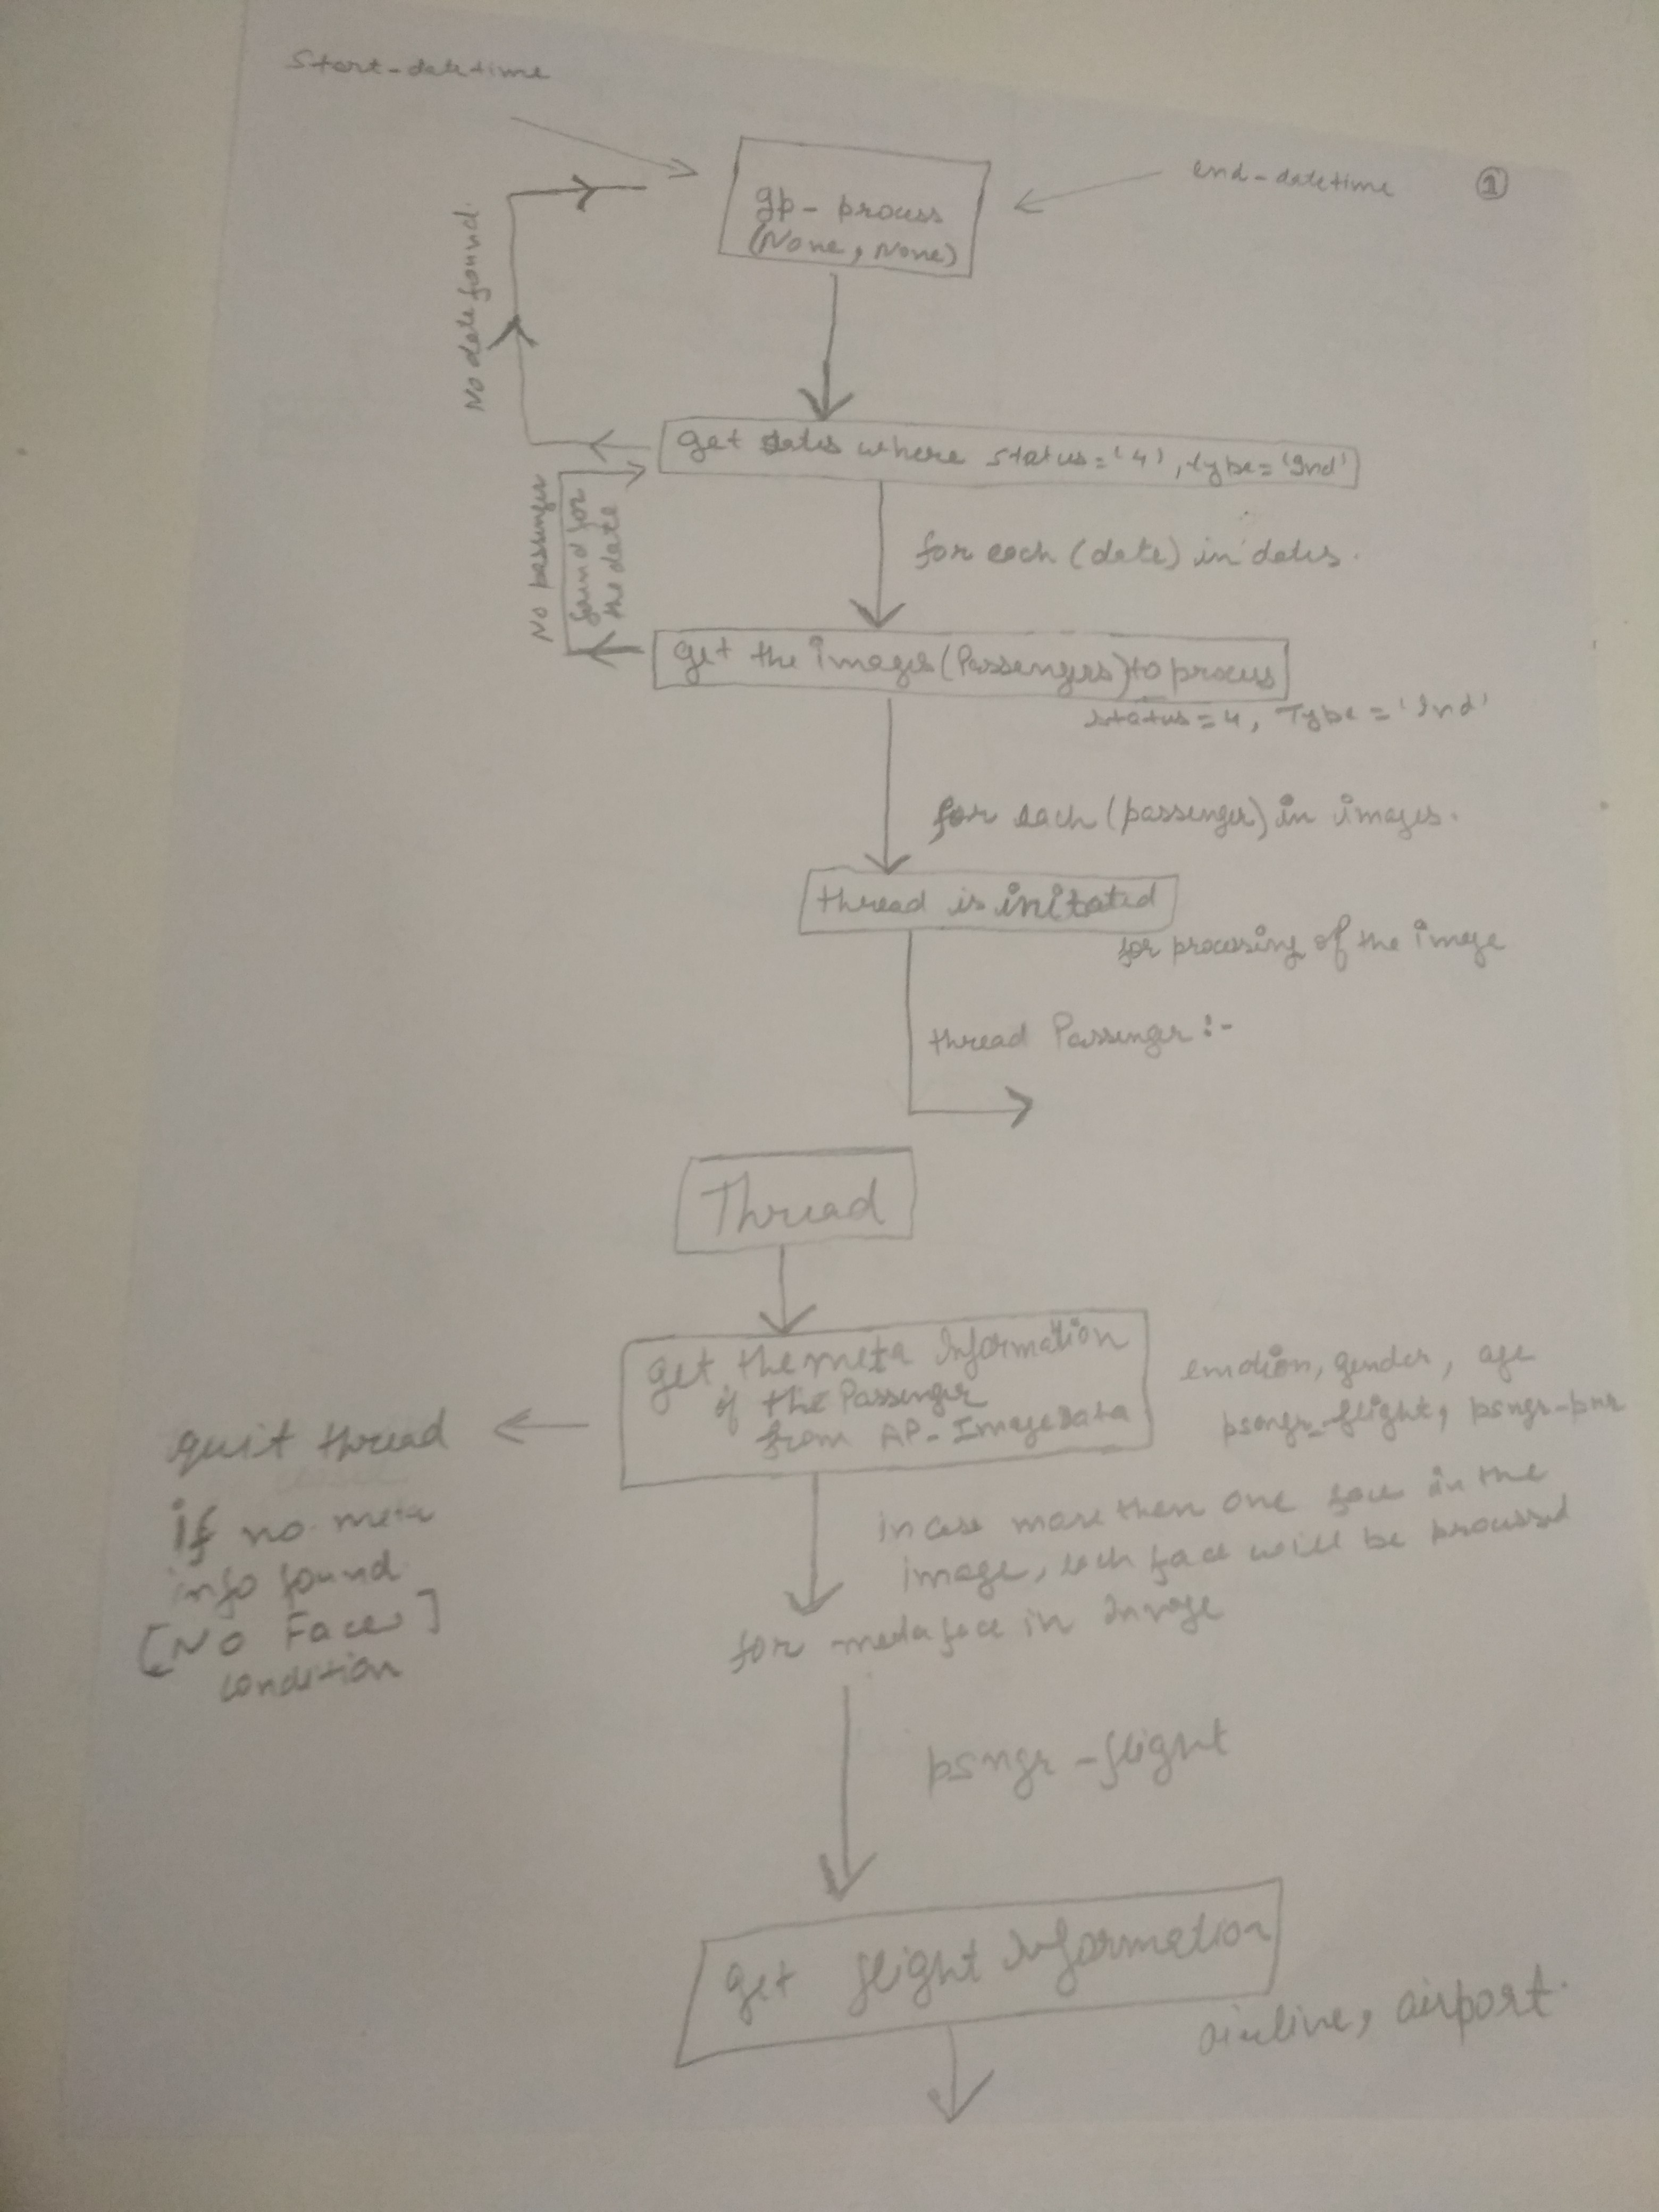 Start-datetime
end-datetime
1
gp-process
(None, None)
No date found.
get dates where status='4', type='Ind'
No passenger
found for
the date
for each (date) in dates.
get the images (Passengers) to process
status=4, Type='Ind'
for each (passenger) in images.
thread is initated
for processing of the image
thread Passenger :-
Thread
get the meta Information
of the Passenger
from AP-ImageData
emotion, gender, age
psngr-flight, psngr-pnr
quit thread
if no meta
info found
[No Faces]
condition
in case more then one face in the
image, each face will be processed
for metaface in Image
psngr-flight
get flight Information
airline, airport.